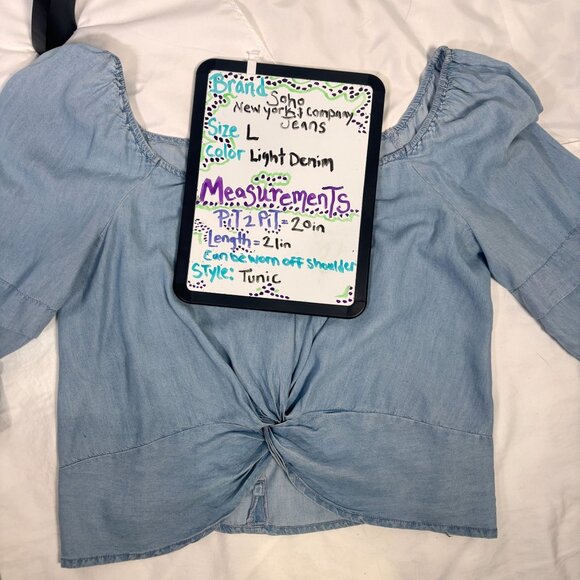 Brand Soho
New York & Company
Jeans
Size L
Color Light Denim
MeasuremenTs
PiT 2 PiT = 20in
Length = 21in
Can be worn off shoulder
STyle: Tunic